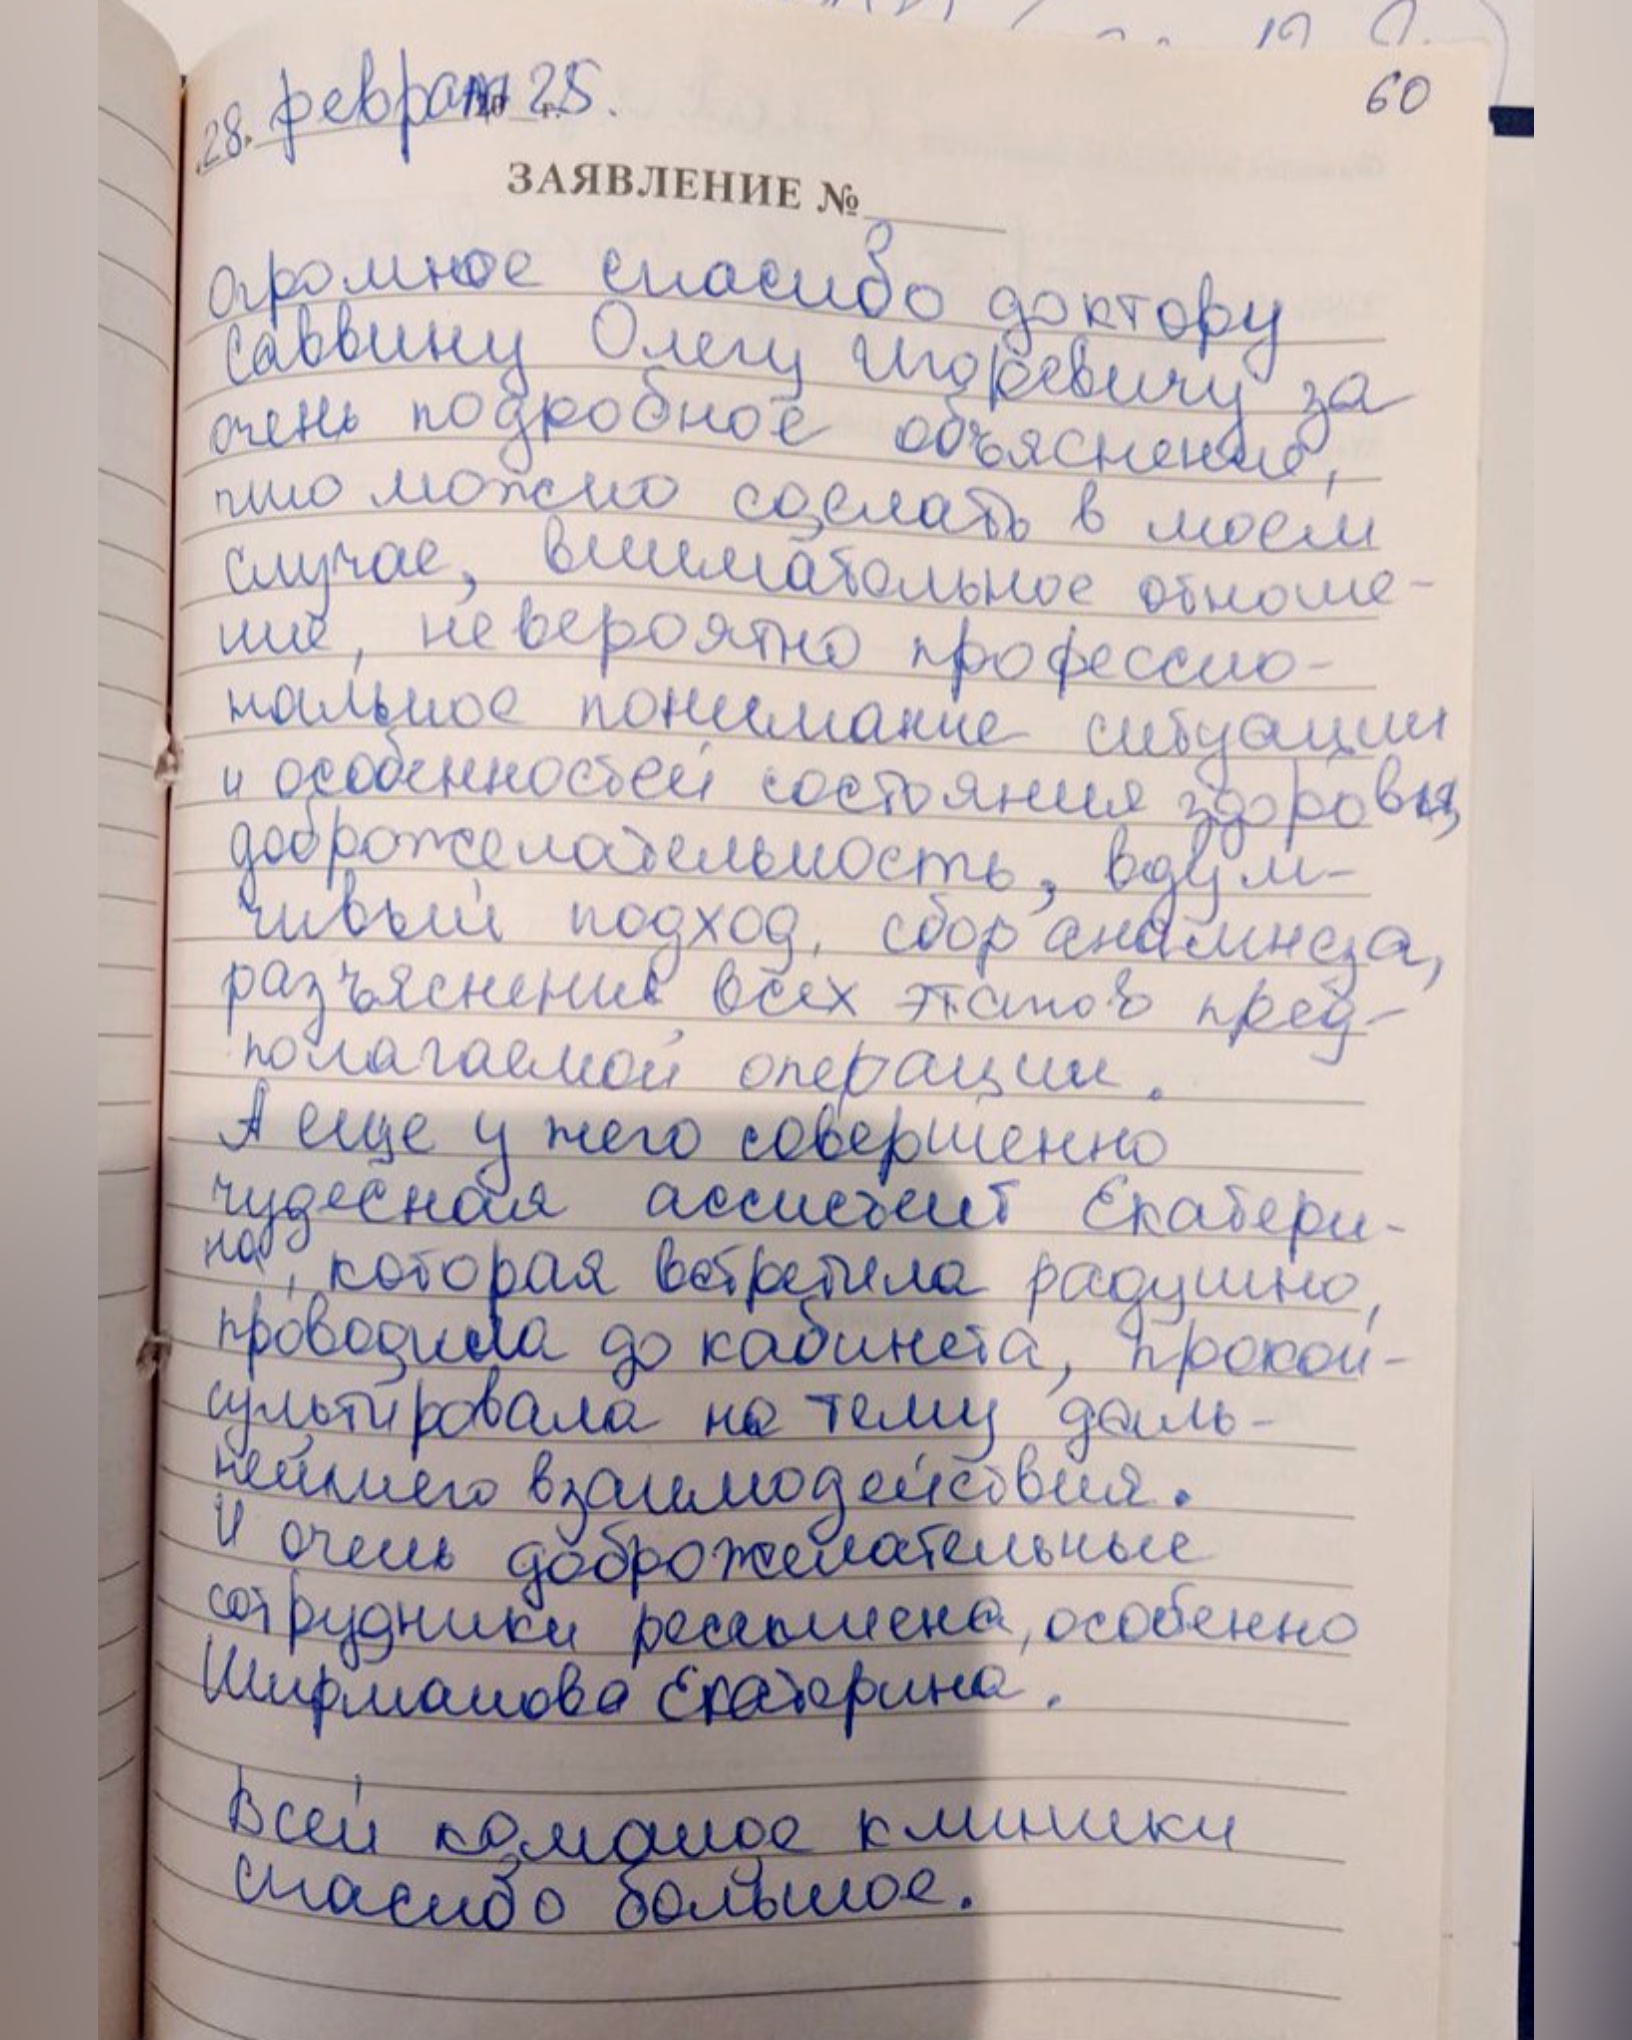 60
28. февраля 25.
ЗАЯВЛЕНИЕ №
Огромное спасибо доктору
Саввину Олегу Игоревичу за
очень подробное объяснение,
что можно сделать в моем
случае, внимательное отноше-
ние, невероятно профессио-
нальное понимание ситуации
и особенностей состояния здоровья,
доброжелательность, вдум-
чивый подход, сбор анамнеза,
разъяснение всех этапов пред-
полагаемой операции.
А еще у него совершенно
чудесная ассистент Екатери-
на, которая встретила радушно,
проводила до кабинета, прокон-
сультировала на тему даль-
нейшего взаимодействия.
И очень доброжелательные
сотрудники ресепшена, особенно
Ширманова Екатерина.
Всей команде клиники
спасибо большое.